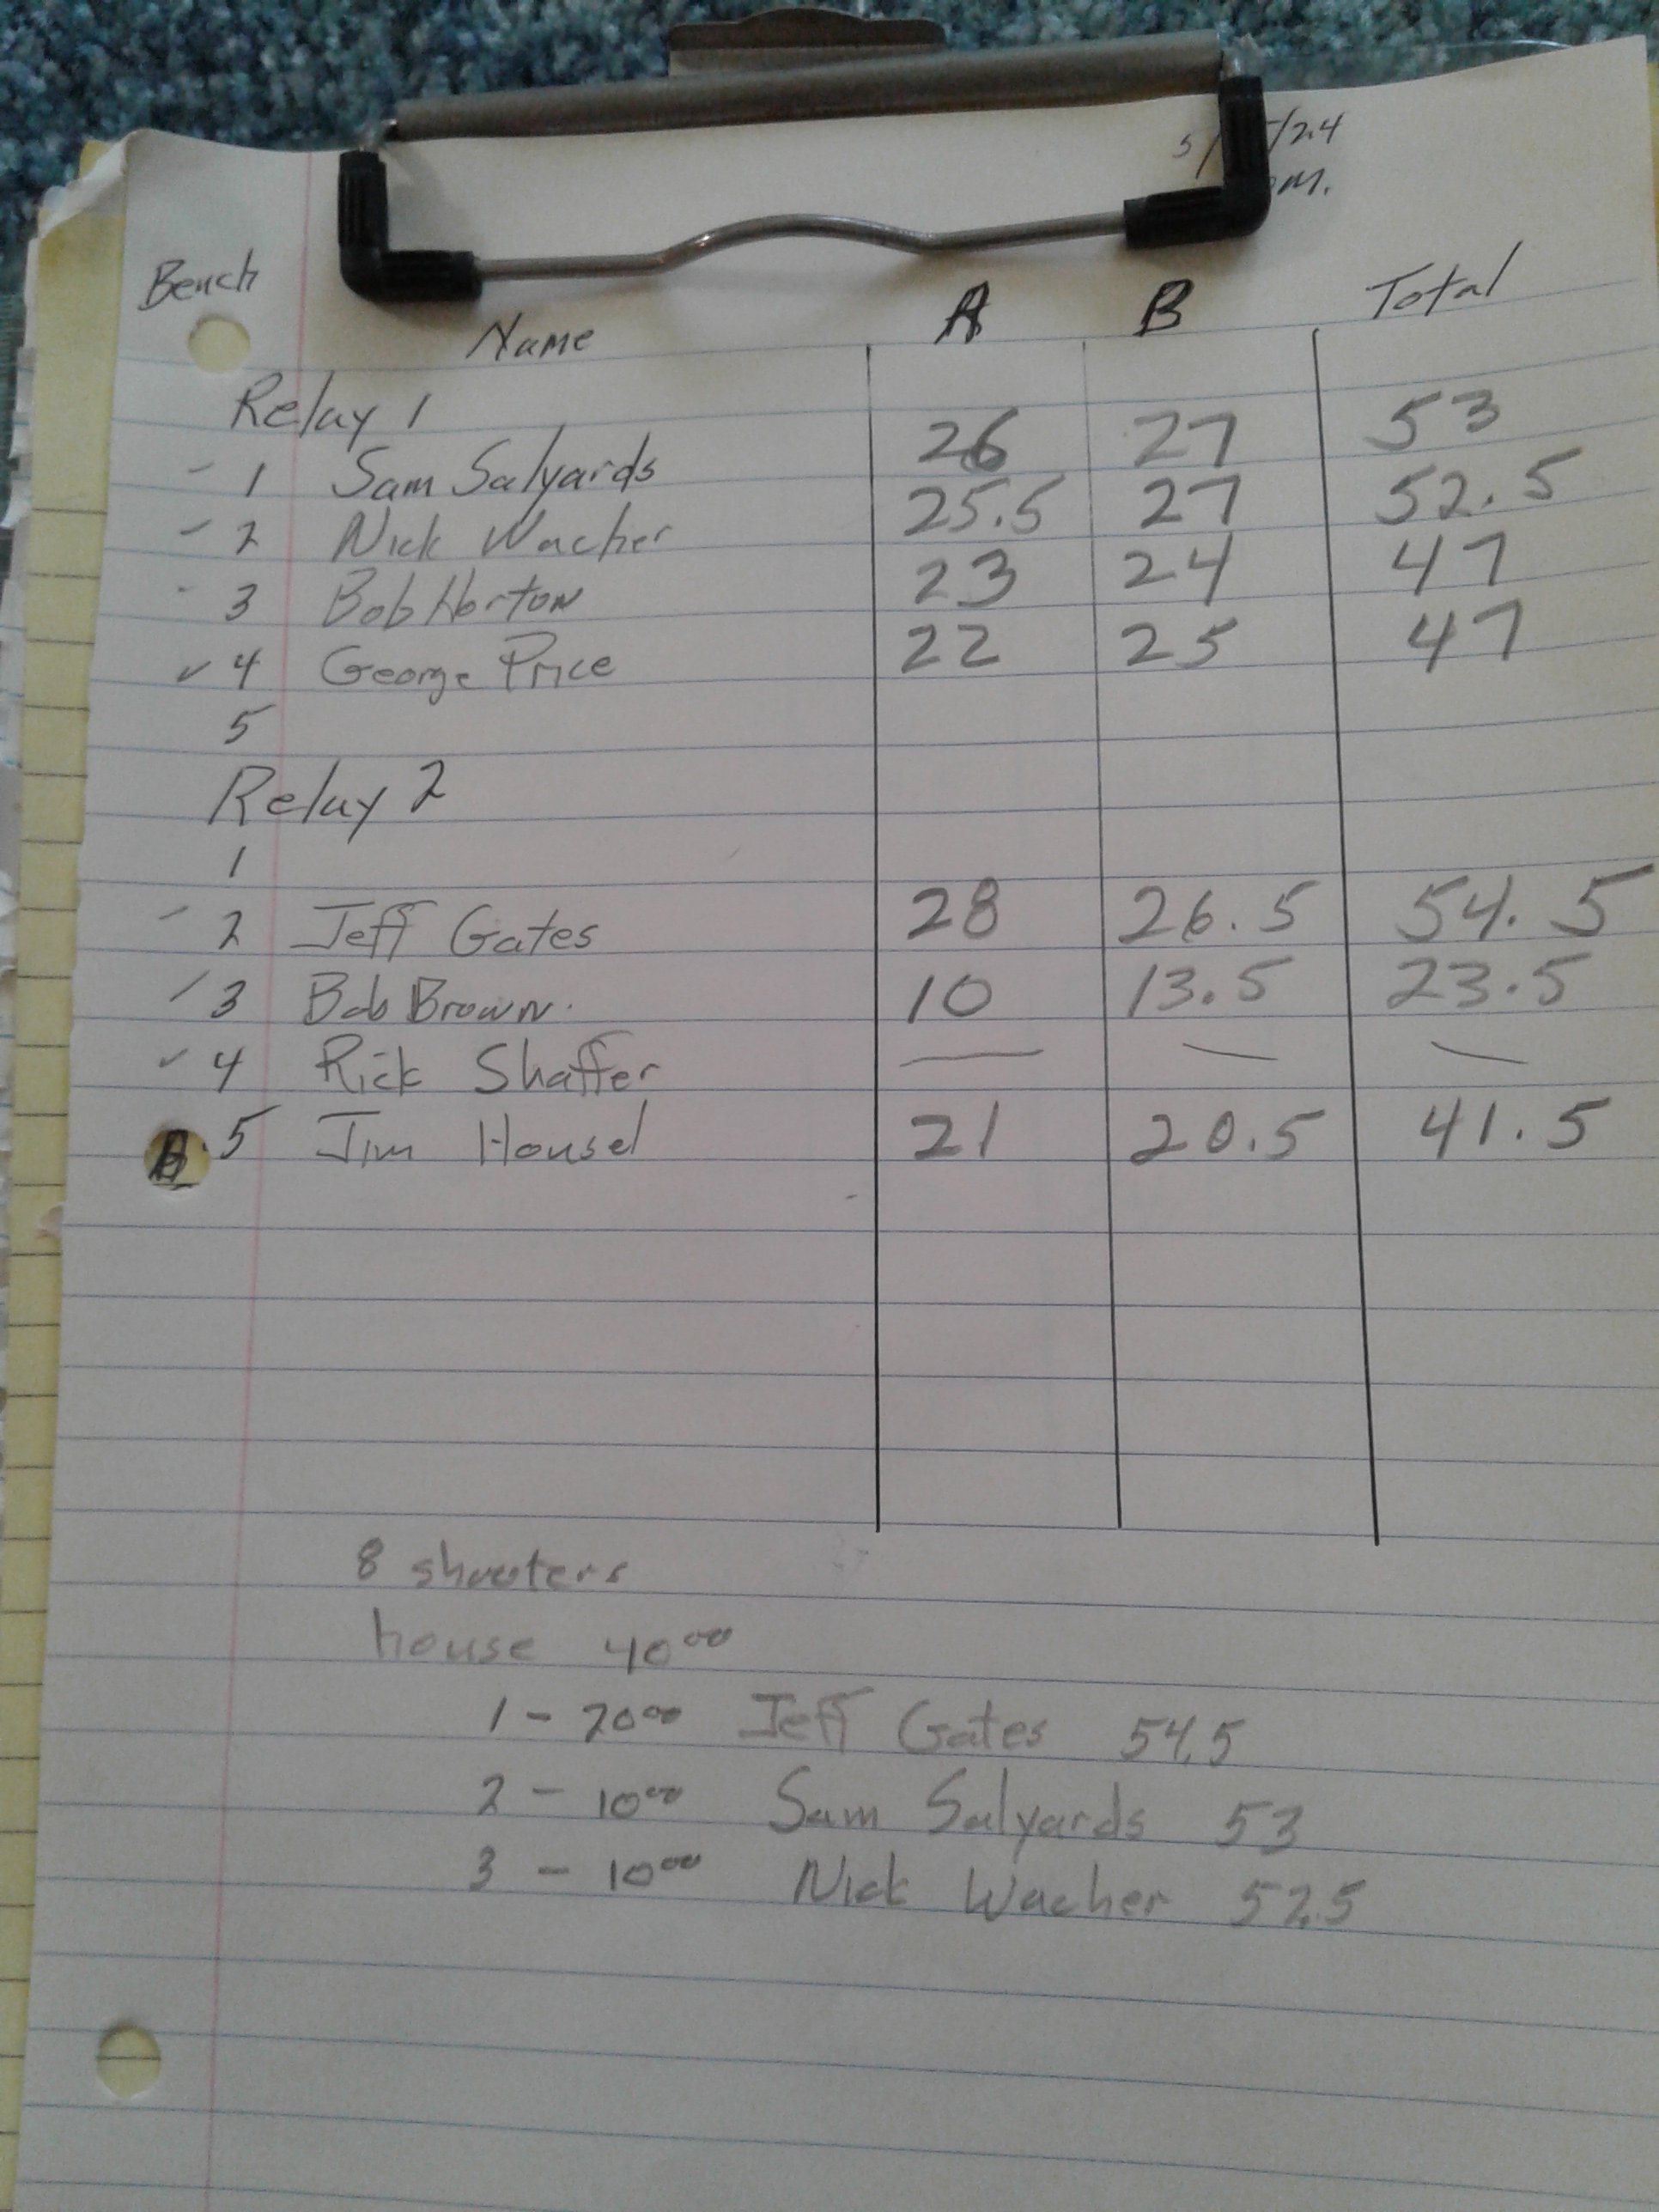 5/ /24
m.
Bench Name A B Total
Relay 1
- 1 Sam Salyards 26 27 53
- 2 Nick Wacher 25.5 27 52.5
- 3 Bob Horton 23 24 47
✓ 4 George Price 22 25 47
5
Relay 2
1
- 2 Jeff Gates 28 26.5 54.5
/ 3 Bob Brown. 10 13.5 23.5
✓ 4 Rick Shaffer — — —
5 Jim Housel 21 20.5 41.5
8 shooters
house 40⁰⁰
1 - 20⁰⁰ Jeff Gates 54.5
2 - 10⁰⁰ Sam Salyards 53
3 - 10⁰⁰ Nick Wacher 52.5